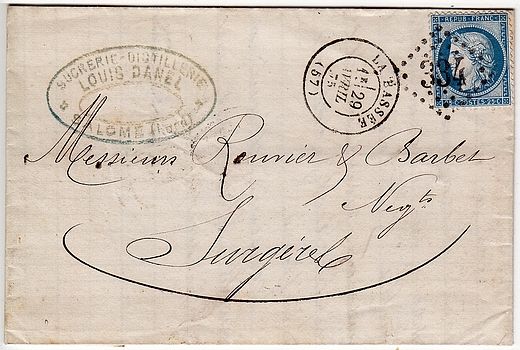 SUCRERIE-DISTILLERIE
LOUIS DANEL
SALOMÉ (Nord)
LA BASSÉE
29
AVRIL
75
(57)
REPUB. FRANC.
POSTES
Messieurs Rouvier & Barbet
Negts
Surgères